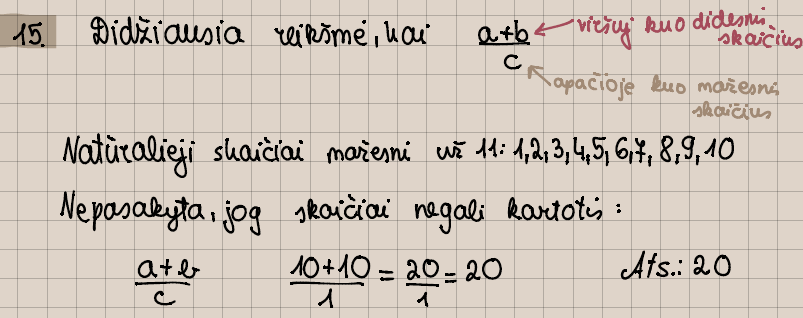 15. Didžiausia reikšmė, kai a+b/c ← viršuj kuo didesnį skaičius
← apačioje kuo mažesnį skaičius
Natūralieji skaičiai mažesni už 11: 1,2,3,4,5,6,7,8,9,10
Nepasakyta, jog skaičiai negali kartotis:
a+b/c 10+10/1 = 20/1 = 20 Ats.: 20